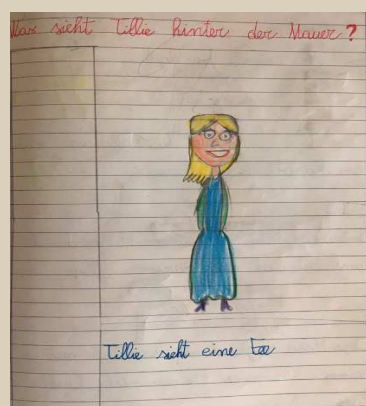 Was sieht Tillie hinter der Mauer?
Tillie sieht eine Fee